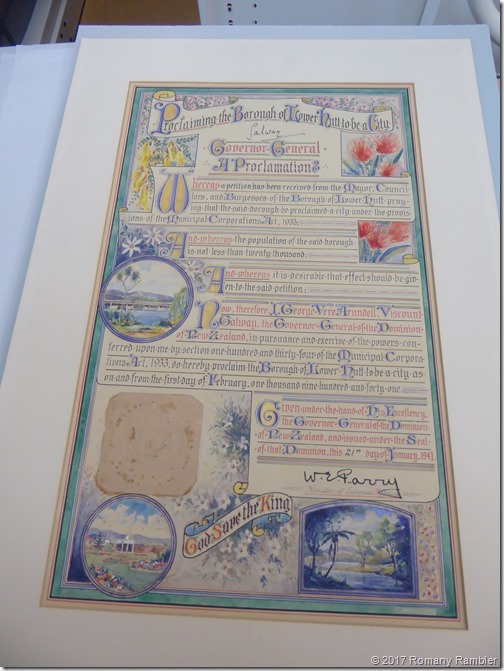 Proclaiming the Borough of Lower Hutt to be a City
Galway
Governor-General
A Proclamation
Whereas a petition has been received from the Mayor, Council-
lors, and Burgesses of the Borough of Lower Hutt pray-
ing that the said borough be proclaimed a city under the provis-
ions of the Municipal Corporations Act, 1933:
And whereas the population of the said borough
is not less than twenty thousand:
And whereas it is desirable that effect should be giv-
en to the said petition:
Now, therefore I, George Vere Arundell, Viscount
Galway, the Governor-General of the Dominion
of New Zealand, in pursuance and exercise of the powers con-
ferred upon me by section one hundred and thirty-four of the Municipal Corpora-
tions Act, 1933, do hereby proclaim the Borough of Lower Hutt to be a city as
on and from the first day of February, one thousand nine hundred and forty-one.
Given under the hand of His Excellency,
the Governor-General of the Dominion
of New Zealand, and issued under the Seal
of that Dominion, this 21st day of January, 1941.
W.E. Parry
Minister of Internal
God Save the King
© 2017 Romany Rambler